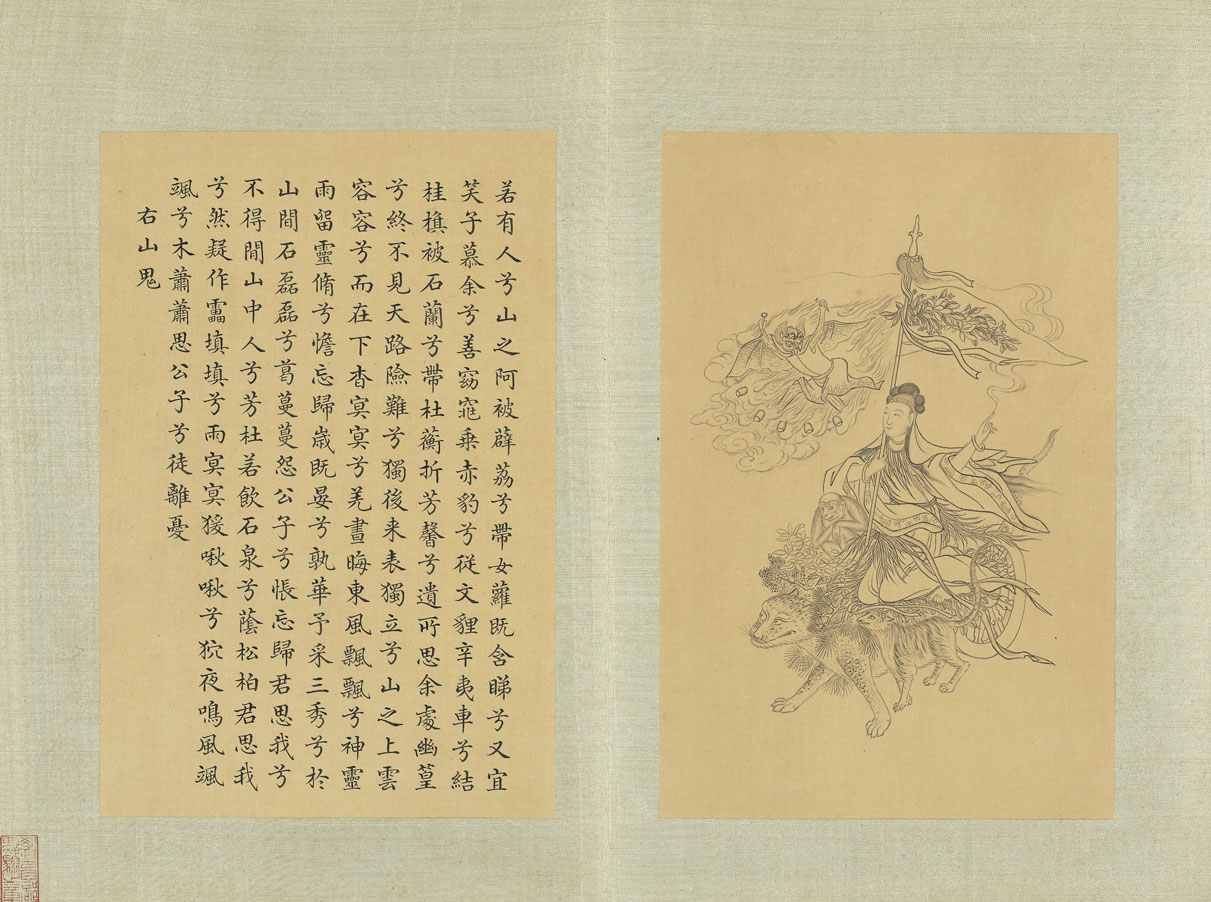 若有人兮山之阿被薜荔兮帶女蘿既含睇兮又宜
笑子慕余兮善窈窕乗赤豹兮從文貍辛夷車兮結
桂旗被石蘭兮帶杜蘅折芳馨兮遺所思余處幽篁
兮終不見天路險難兮獨後来表獨立兮山之上雲
容容兮而在下杳冥冥兮羌晝晦東風飄飄兮神靈
雨留靈脩兮憺忘歸歳既晏兮孰華予采三秀兮於
山間石磊磊兮葛蔓蔓怨公子兮悵忘歸君思我兮
不得間山中人兮芳杜若飲石泉兮蔭松柏君思我
兮然疑作靁填填兮雨冥冥猨啾啾兮狖夜鳴風颯
颯兮木蕭蕭思公子兮徒離憂
右山鬼